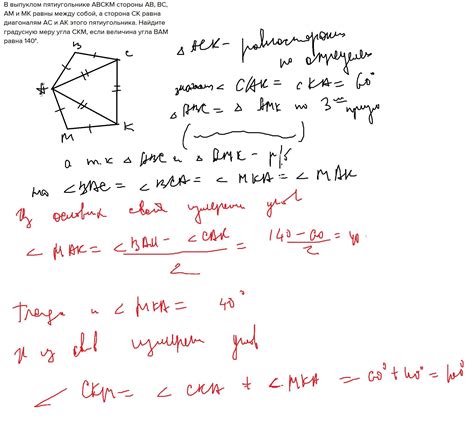 В выпуклом пятиугольнике ABCKM стороны AB, BC,
AM и MK равны между собой, а сторона CK равна
диагоналям AC и AK этого пятиугольника. Найдите
градусную меру угла CKM, если величина угла BAM
равна 140°.
B
C
A
M
K
△ACK - равносторон
по определ
значит < CAK = < CKA = 60°
△ABC = △ AMK по 3
а т.к △ABC и △AMK - р/б
то <BAC = <BCA = < MKA = < MAK
Из основн свой измерен угл
< MAK = <BAM - <CAK / 2 = 140 - 60 / 2 = 40
Тогда и < MKA = 40°
и из свв измерен углов
< CKM = < CKA + < MKA = 60° + 40° = 100°